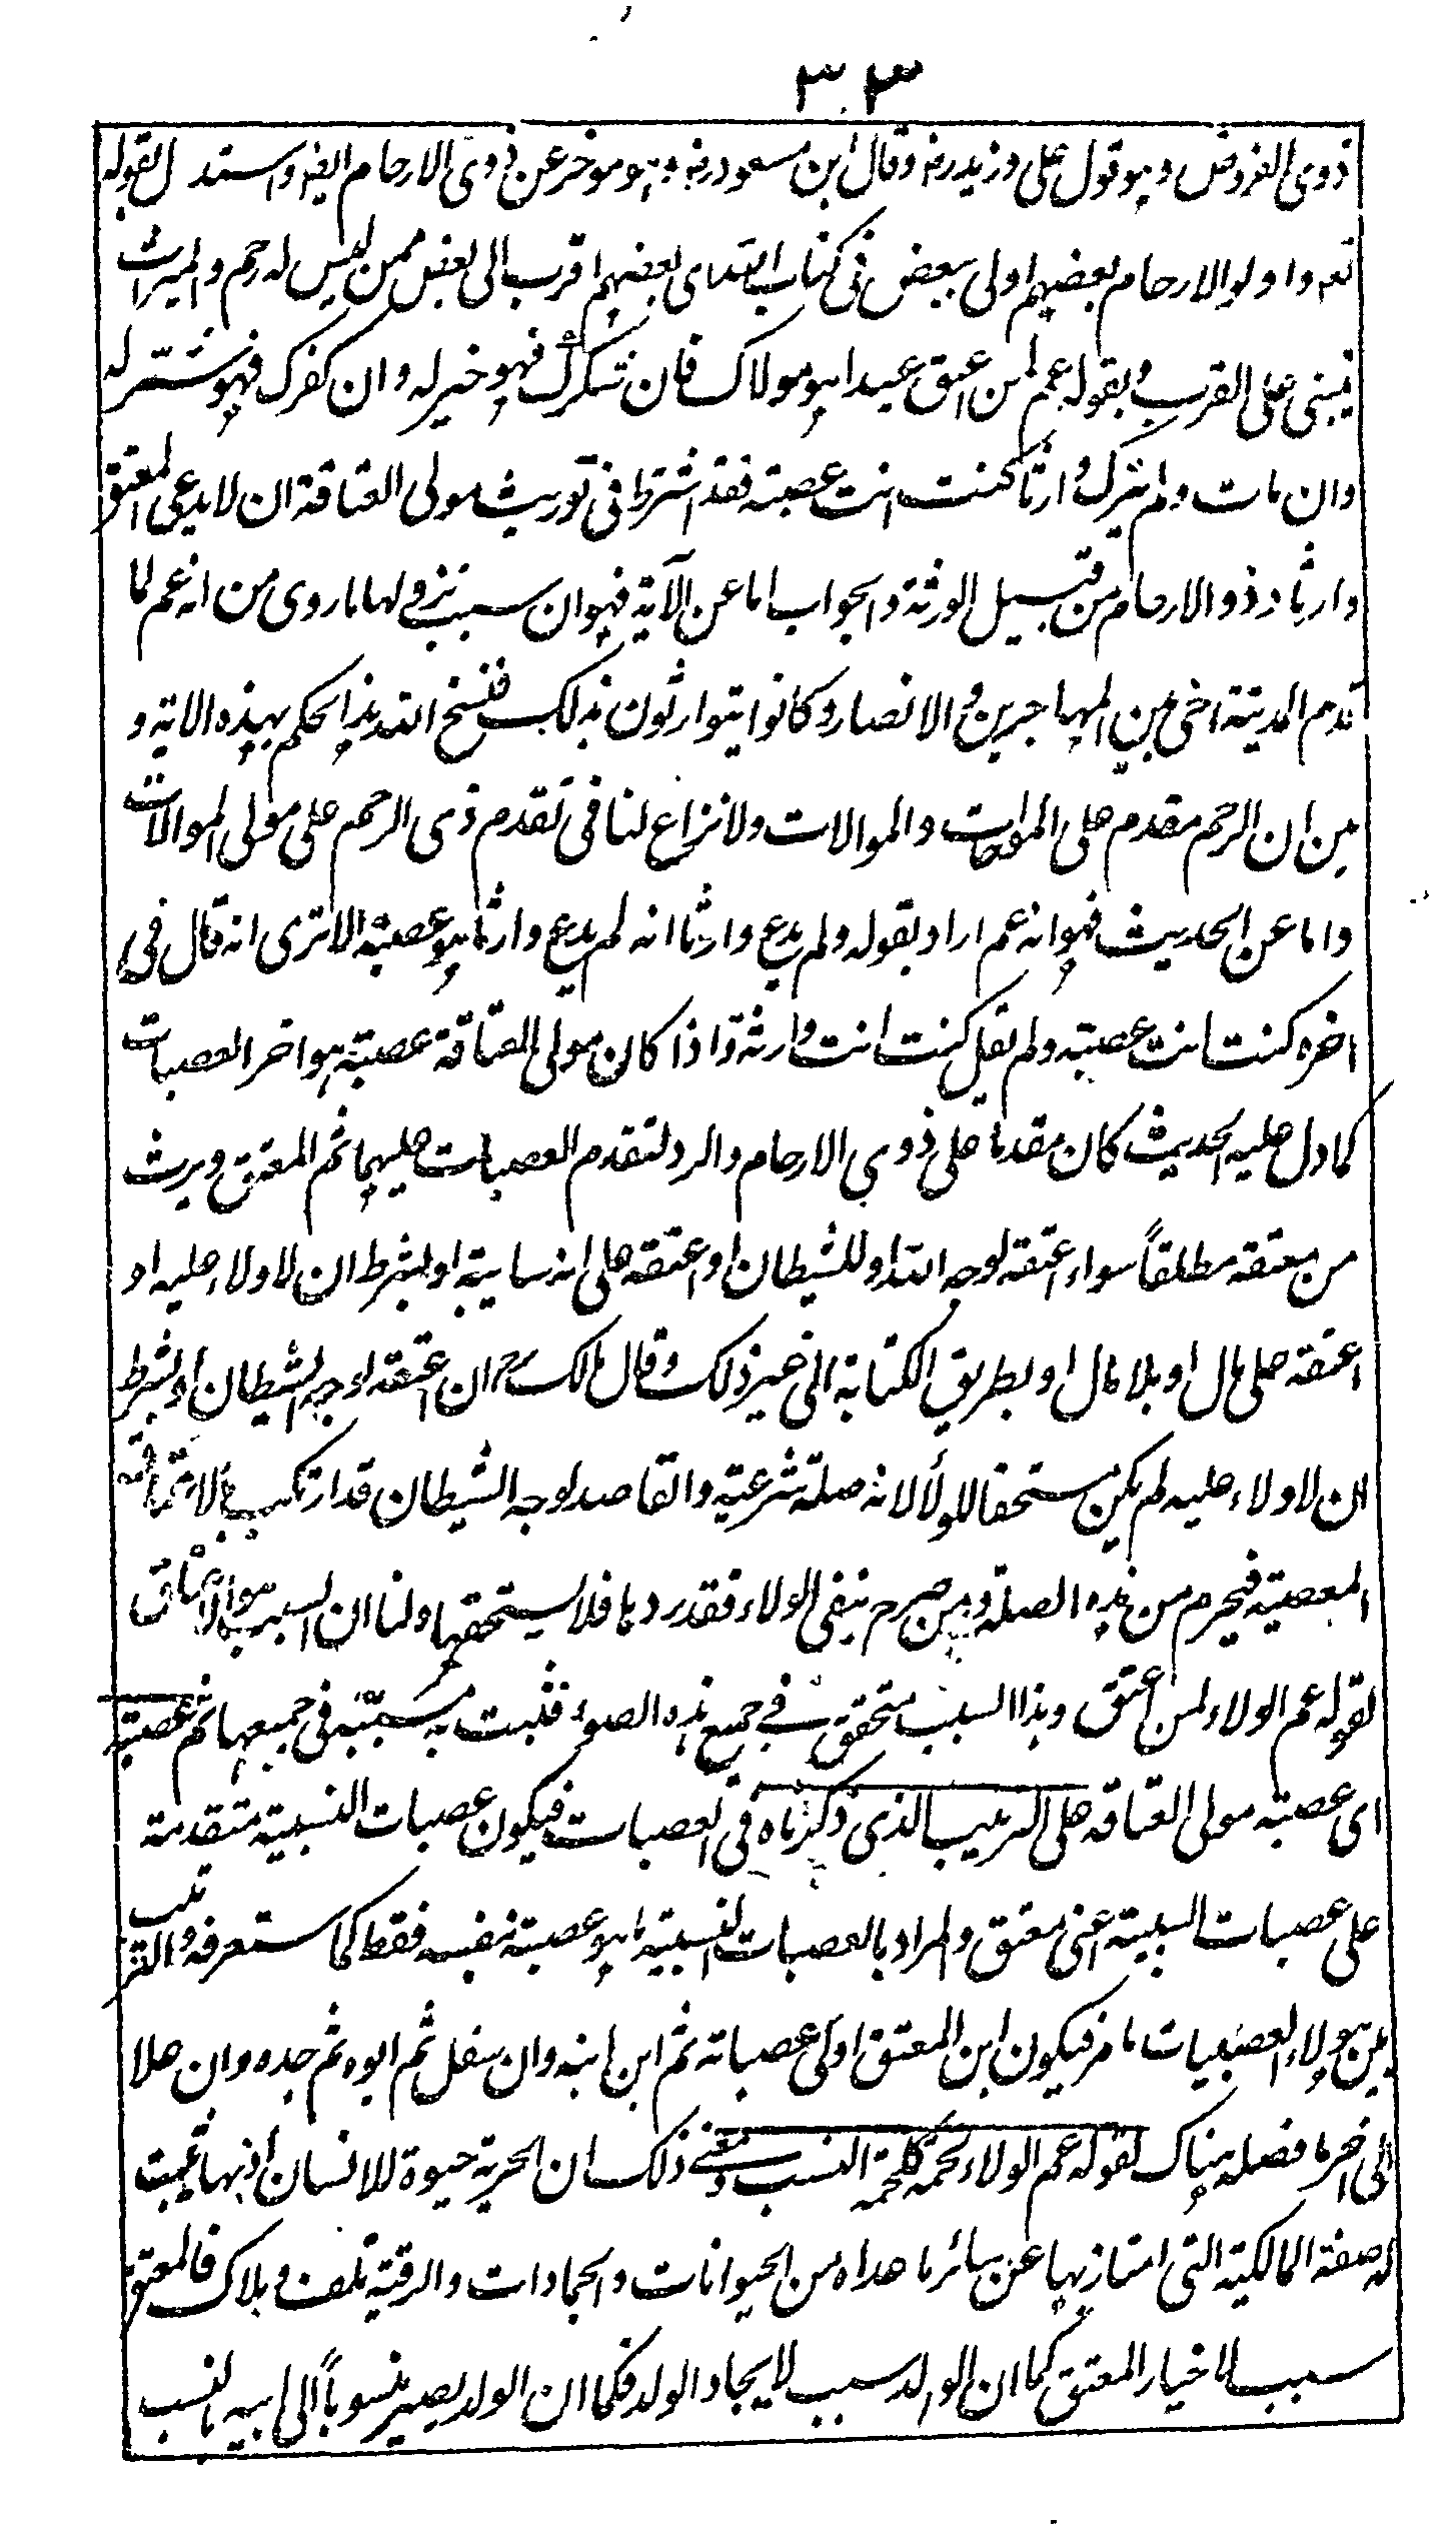 ٣٠٣
ذوى الفروض وهو قول على وزيد رضه وقال ابن مسعود رضه وهو موخر عن ذوى الارحام ايضه واستدل بقوله
تعه واولوالارحام بعضهم اولى ببعض فى كتاب الله اى بعضهم اقرب الى بعض ممن ليس له رحم والميراث
يبنى على القرب وبقوله عم لمن اعتق عبدا هو مولاك فان شكرك فهو خير له وان كفرك فهو شر له
وان مات ولم يترك وارثا كنت انت عصبته فقد اشترط فى توريث مولى العتاقة ان لا يدعى المعتق
وارثا و ذو الارحام من قبيل الورثة والجواب اما عن الآية فهو ان سبب نزولها ما روى من انه عم لما
قدم المدينة اخى بين المهاجرين والانصار وكانوا يتوارثون بذلك فنسخ الله هذا الحكم بهذه الاية و
بين ان الرحم مقدم على المواخات والموالات ولا نزاع لنا فى تقدم ذى الرحم على مولى الموالات
واما عن الحديث فهو انه عم اراد بقوله ولم يدع وارثا انه لم يدع وارثا هو عصبة الا ترى انه قال فى
اخره كنت انت عصبته ولم يقل كنت انت وارثه واذا كان مولى العتاقة عصبة هو اخر العصبات
كما دل عليه الحديث كان مقدما على ذوى الارحام والرد لتقدم العصبات عليهما ثم المعتق ويرث
من معتقه مطلقاً سواء اعتقه لوجه الله او للشيطان او اعتقه على انه سايبة او بشرط ان لا ولاء عليه او
اعتقه على مال او بلا مال او بطريق الكتابة الى غير ذلك وقال مالك رح ان اعتقه لوجه الشيطان او بشرط
ان لا ولاء عليه لم يكن مستحقا للولاء لانه صلة شرعية والقاصد لوجه الشيطان قد ارتكب بالاعتاقه
المعصية فيحرم من هذه الصلة ومن صرح بنفى الولاء فقد ردها فلا يستحقها ولنا ان السبب هو الاعتاق
لقوله عم الولاء لمن اعتق وهذا السبب متحقق فى جميع هذه الصور فثبت به مسببه فى جميعها ثم عصبته
اى عصبة مولى العتاقه على الترتيب الذى ذكرناه فى العصبات فيكون عصبات النسبية متقدمة
على عصبات السببية اعنى معتق والمراد بالعصبات النسبية ما هو عصبة بنفسه فقط كما ستعرفه والترتيب
بين هولاء العصبات ما مر فيكون ابن المعتق اولى عصباته ثم ابن ابنه وان سفل ثم ابوه ثم جده وان علا
الى اخر ما فصله هناك لقوله عم الولاء لحمة كلحمة النسب ومعنى ذلك ان الحرية حيوة للانسان اذ بها ثبت
له صفة المالكية التى امتاز بها عن سائر ما عداه من الحيوانات والجمادات والرقية تلف وهلاك فالمعتق
سبب لاحيار المعتق كما ان الوالد سبب لايجاد الولد فكما ان الولد يصير منسوباً الى ابيه بالنسب